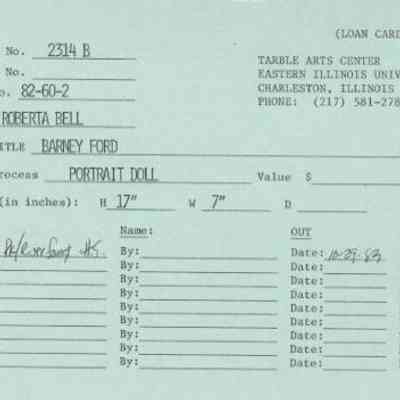 (LOAN CARD
No. 2314 B
TARBLE ARTS CENTER
No.
EASTERN ILLINOIS UNIV
o. 82-60-2
CHARLESTON, ILLINOIS
PHONE: (217) 581-278
ROBERTA BELL
ITLE BARNEY FORD
rocess PORTRAIT DOLL Value $
(in inches): H 17" W 7" D
Name: OUT
By: Date: 10-29-83
By: Date:
By: Date:
By: Date:
By: Date:
By: Date:
By: Date:
By: Date:
By: Date: